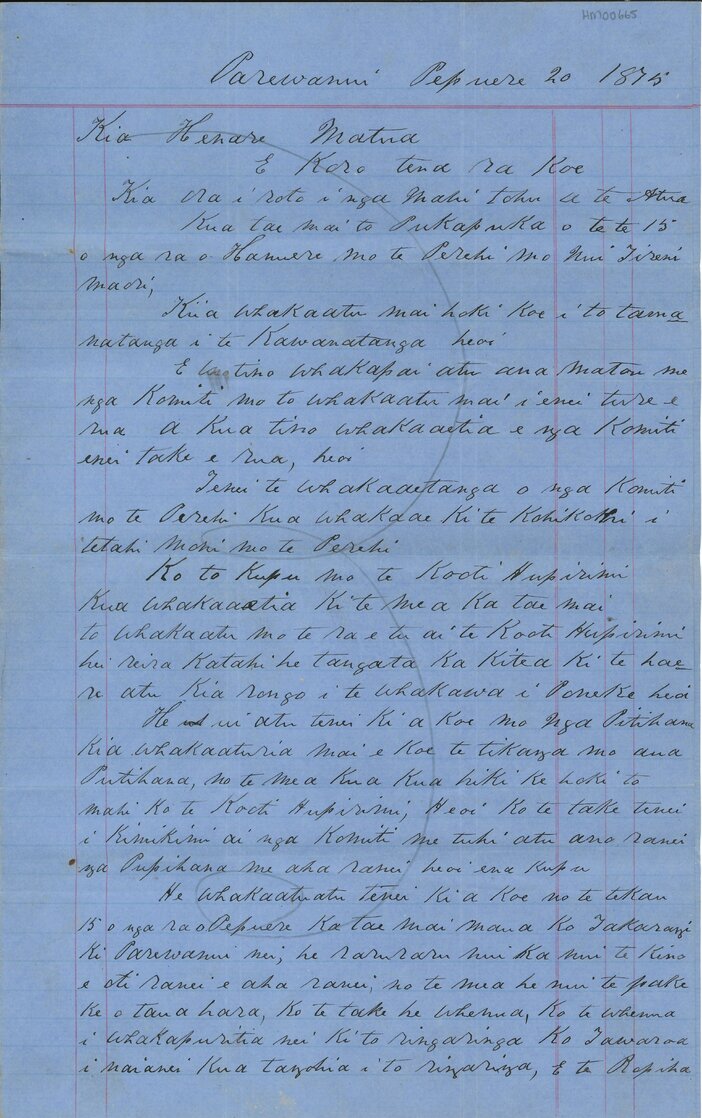 HM00665
Parewanui Pepuere 20 1875
Kia Henare Matua
E Koro tena ra Koe
Kia ora i roto i nga Mahi tohu a te Atua
Kua tae mai to Pukapuka o te te 15
o nga ra o Hanuere mo te Perehi mo Nui Tireni
maori,
Kua whakaatu mai hoki Koe i to tama
natanga i te Kawanatanga heoi
E tino whakapai atu ana matou me
nga Komiti mo to whakaatu mai i enei ture e
rua A Kua tino whakaaetia e nga Komiti
enei take e rua, heoi
Tenei te whakaaetanga o nga Komiti
mo te Perehi Kua whakaae Ki te Kohikohi i
tetahi moni mo te Perehi
Ko to Kupu mo te Kooti Hupirimi
Kua whakaaetia Ki te mea Ka tae mai
to whakaatu mo te ra e tu ai te Kooti Hupirimi
hei reira Katahi he tangata Ka Kitea Ki te hae
re atu Kia rongo i te whakawa i Poneke heoi
He ui atu tenei Ki a Koe mo Nga Pitihana
Kia whakaaturia mai e Koe te tikanga mo ana
Putihana, no te mea Kua Kua hiki ke hoki to
mahi Ko te Kooti Hupirimi, Heoi Ko te take tenei
i Kimikimi ai nga Komiti me tuhi atu ano ranei
nga Pupihana me aha ranei, heoi ena Kupu
He whakaatuatu Tenei Ki a Koe no te tekau
15 o nga ra o Pepuere Ka tae mai mana Ko Takarangi
Ki Parewanui nei, he raruraru nui Ka nui te Kino
e oti ranei e aha ranei, no te mea he nui te pake
ke o tana hara, Ko te take he whenua, Ko te whenua
i whakapuritia nei Ki to ringaringa Ko Tawaroa
i naianei Kua tangohia i to ringaringa, E te Ropiha